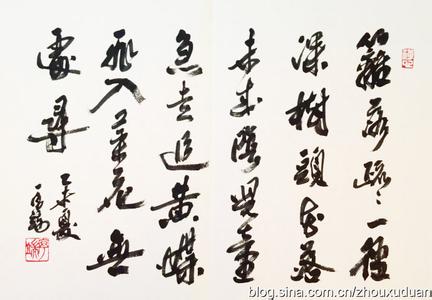 籬落疏〻一徑
深樹頭花落
未成陰兒童
急走追黃蝶
飛入菜花無
處尋
blog.sina.com.cn/zhouxuduan